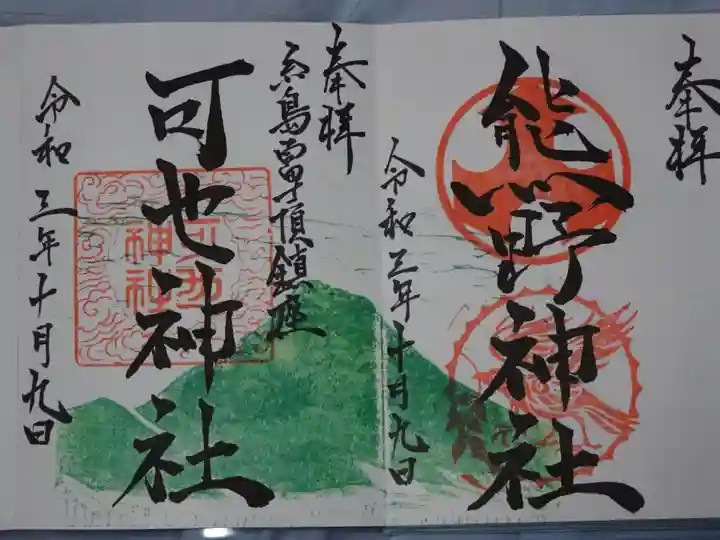 奉拝
熊野神社
令和三年十月九日
奉拝
糸島富士頂鎮座
可也神社
令和三年十月九日